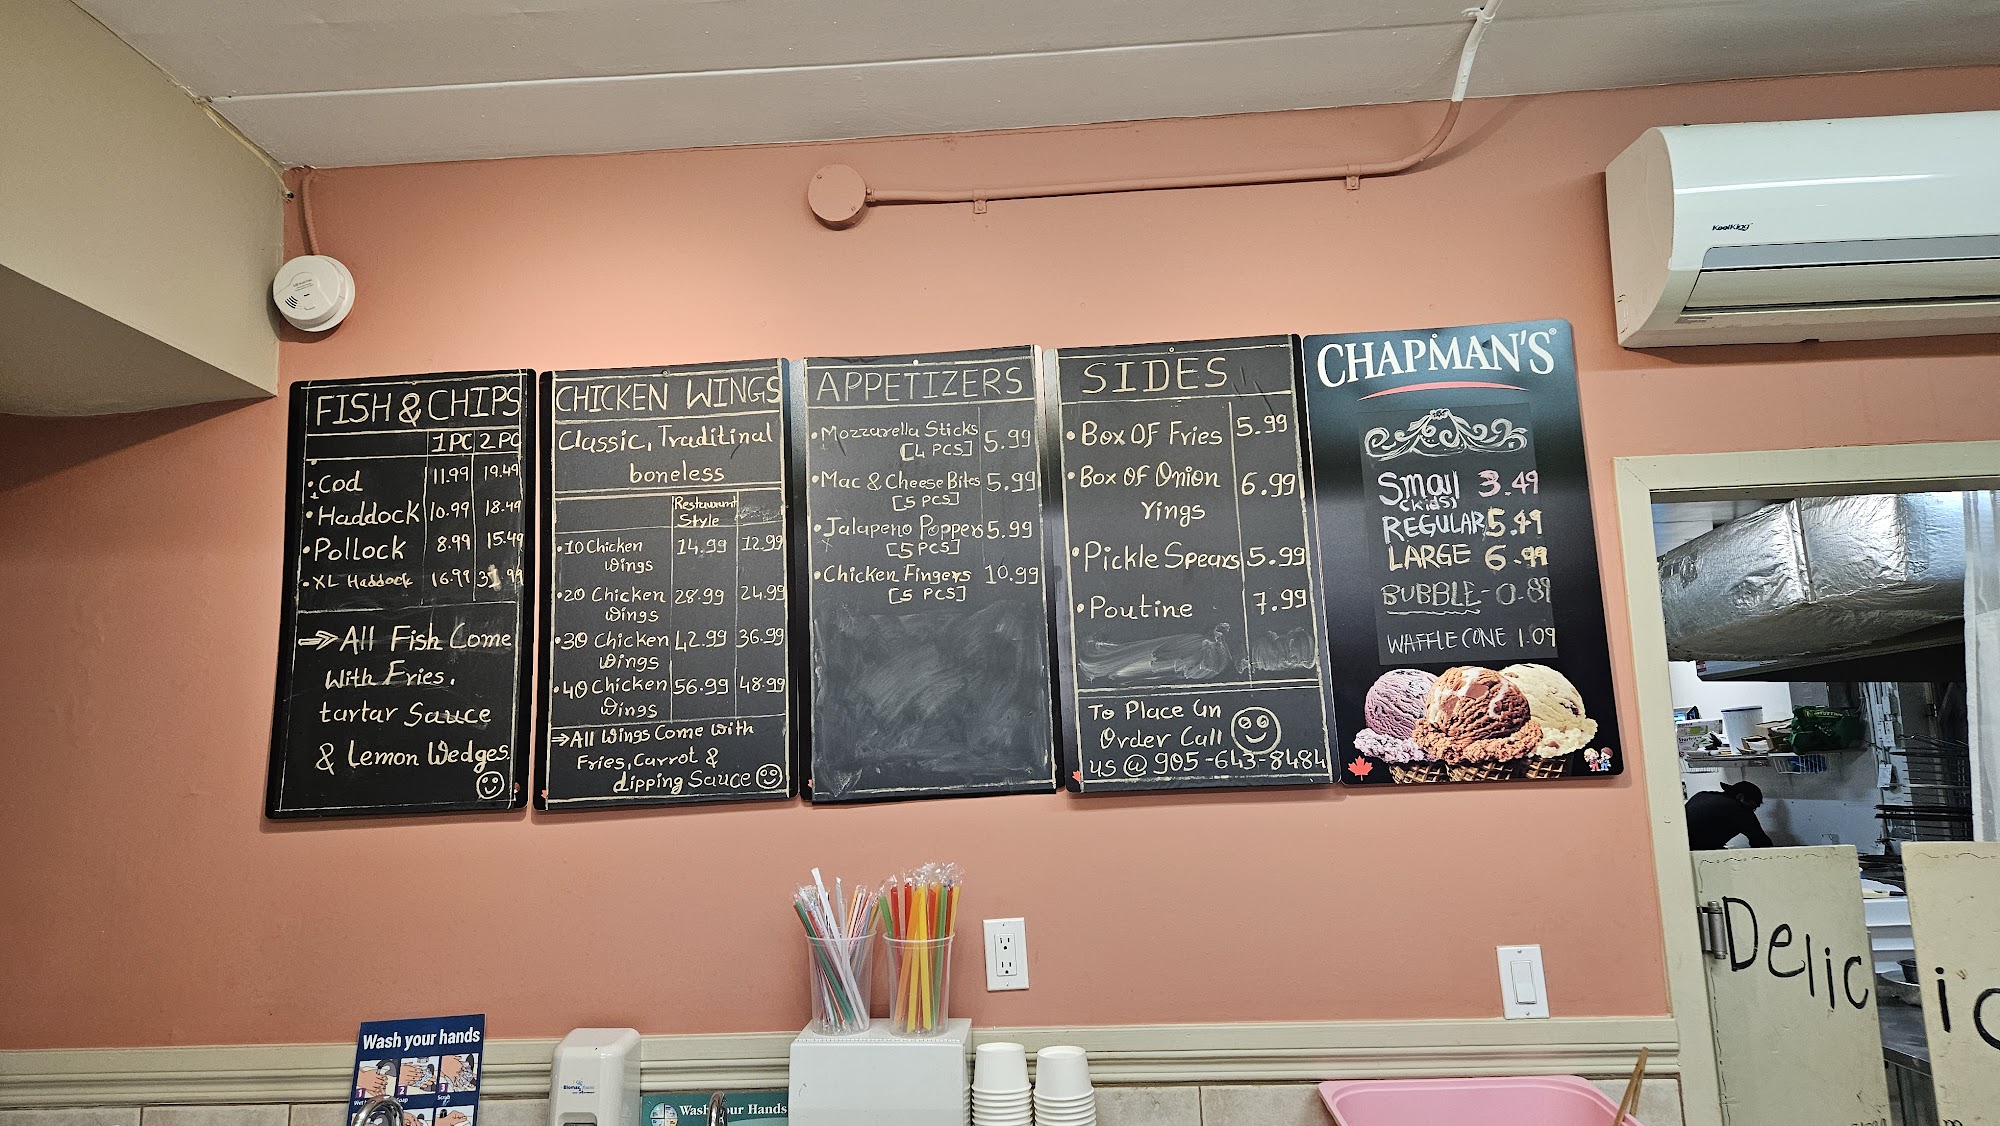 FISH & CHIPS
1 PC 2 PC
• Cod 11.99 19.49
• Haddock 10.99 18.49
• Pollock 8.99 15.49
• XL Haddock 16.99 31.99
⇒ All Fish Come
With Fries.
tartar Sauce
& Lemon Wedges.
CHICKEN WINGS
Classic, Traditinal
boneless
Restaurant
Style
• 10 Chicken 14.99 12.99
Wings
• 20 Chicken 28.99 24.99
Wings
• 30 Chicken 42.99 36.99
Wings
• 40 Chicken 56.99 48.99
Wings
⇒ All Wings Come With
Fries, Carrot &
dipping Sauce
APPETIZERS
• Mozzarella Sticks 5.99
[4 PCS]
• Mac & Cheese Bites 5.99
[5 PCS]
• Jalapeno Poppers 5.99
[5 PCS]
• Chicken Fingers 10.99
[5 PCS]
SIDES
• Box OF Fries 5.99
• Box OF Onion 6.99
rings
• Pickle Spears 5.99
• Poutine 7.99
To Place an
Order Call
us @ 905-643-8484
CHAPMAN'S®
Small 3.49
(kids)
REGULAR 5.49
LARGE 6.99
BUBBLE - 0.89
WAFFLE CONE 1.09
KoolKing
Delic
Wash your hands
1 2 3
Soap Scrub
Wash your Hands